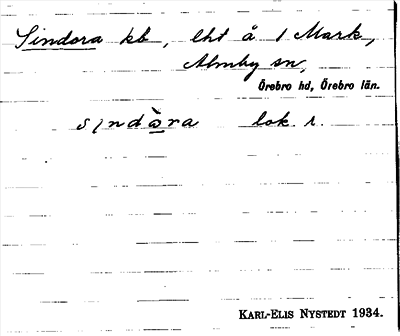 Sindora kb, lht å 1 Mark,
Almby sn,
Örebro hd, Örebro län.
sindàra lok r.
KARL-ELIS NYSTEDT 1934.